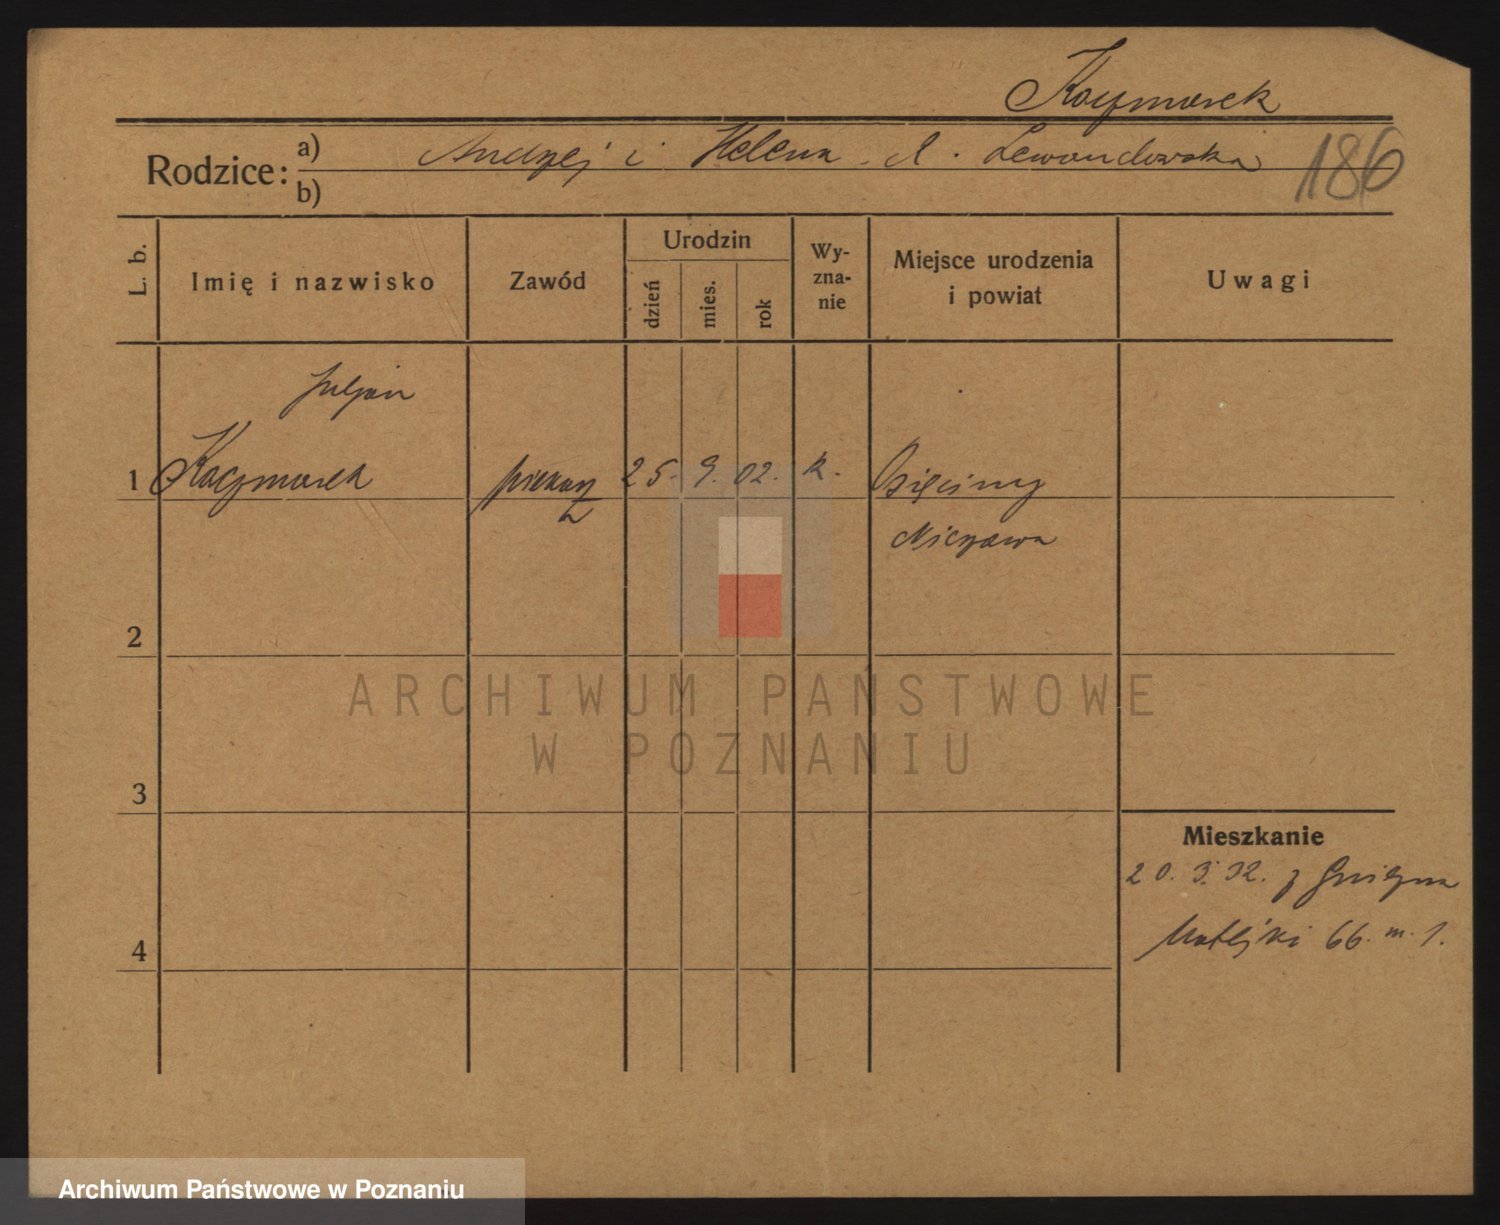 Kaczmarek
Rodzice: a) Andrzej i Helena d. Lewandowska
b)
186
L. b.
Imię i nazwisko
Zawód
Urodzin
dzień
mies.
rok
Wy-
zna-
nie
Miejsce urodzenia
i powiat
Uwagi
Juljan
1 Kaczmarek piekarz 25. 9. 02. k. Osięciny
Nieszawa
2
ARCHIWUM PAŃSTWOWE
W POZNANIU
3
Mieszkanie
20. 3. 32. z Gniezna
Matejki 66. m. 1.
4
Archiwum Państwowe w Poznaniu